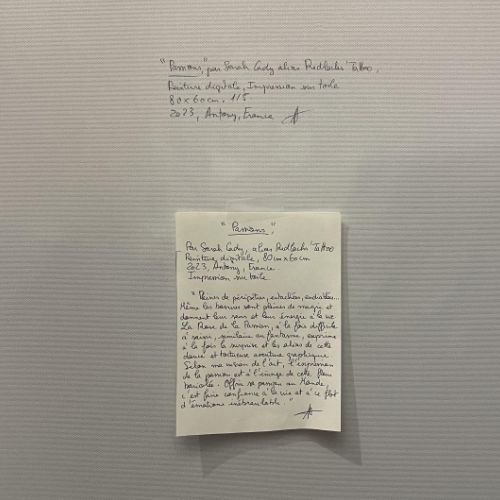 "Passions", par Sarah Cady alias Redlocks' Tattoo,
Peinture digitale, Impression sur toile
80x60cm. 1/5
2023, Antony, France
"Passions",
Par Sarah Cady, alias Redlocks' Tattoo
Peinture digitale, 80cmx60cm
2023, Antony, France
Impression sur toile
" Pleines de péripéties, entachées, endiablées...
Même les heures sont pleines de magie et
donnent leur sens et leur énergie à la vie
La Rose de la Passion, à la fois difficile
à saisir, similaire au fantasme, exprime
à la fois la surprise et les aléas de cette
dense et tortueuse aventure graphique
Selon ma vision de l'art, l'expression
de la passion est à l'image de cette fleur
bariolée. Offrir sa passion au Monde,
c'est faire confiance à la vie et à ce flot
d'émotions inébranlable. "